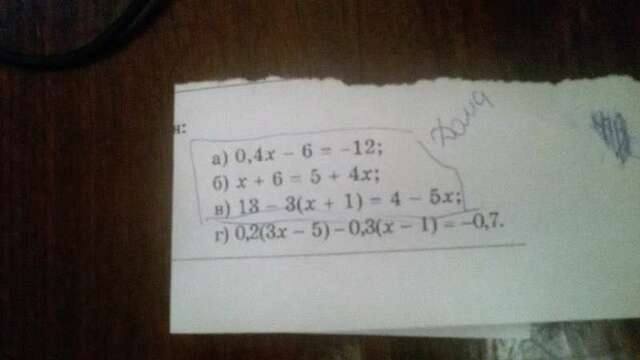 н:
Дома
а) 0,4x − 6 = −12;
б) x + 6 = 5 + 4x;
в) 13 − 3(x + 1) = 4 − 5x;
г) 0,2(3x − 5) − 0,3(x − 1) = −0,7.